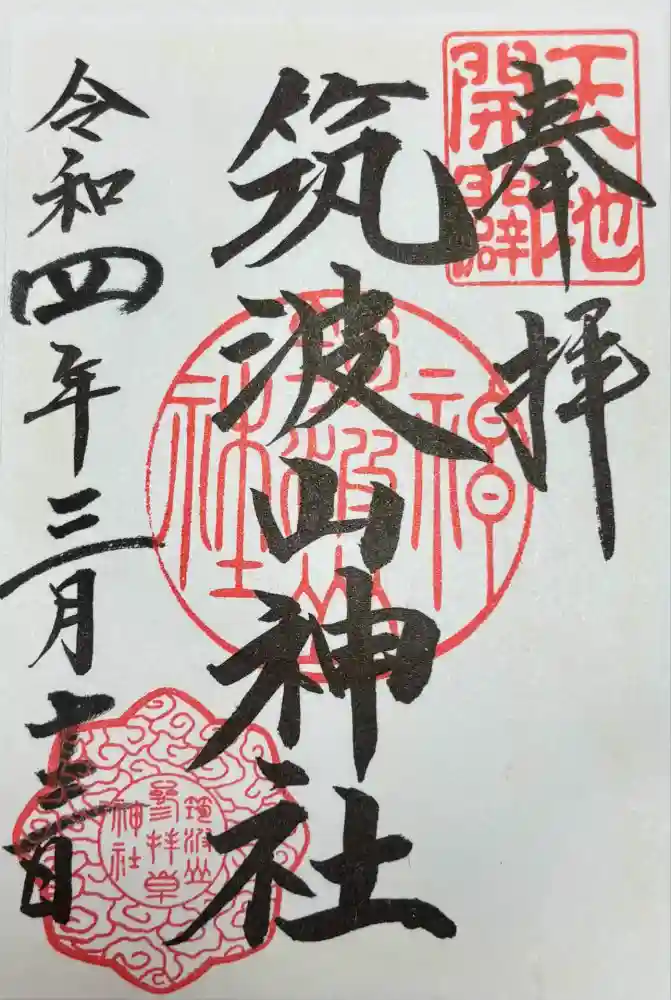 天地
開闢
奉拝
筑波山神社
神
筑波山
社
令和四年三月十三日
筑波山
参拝章
神社